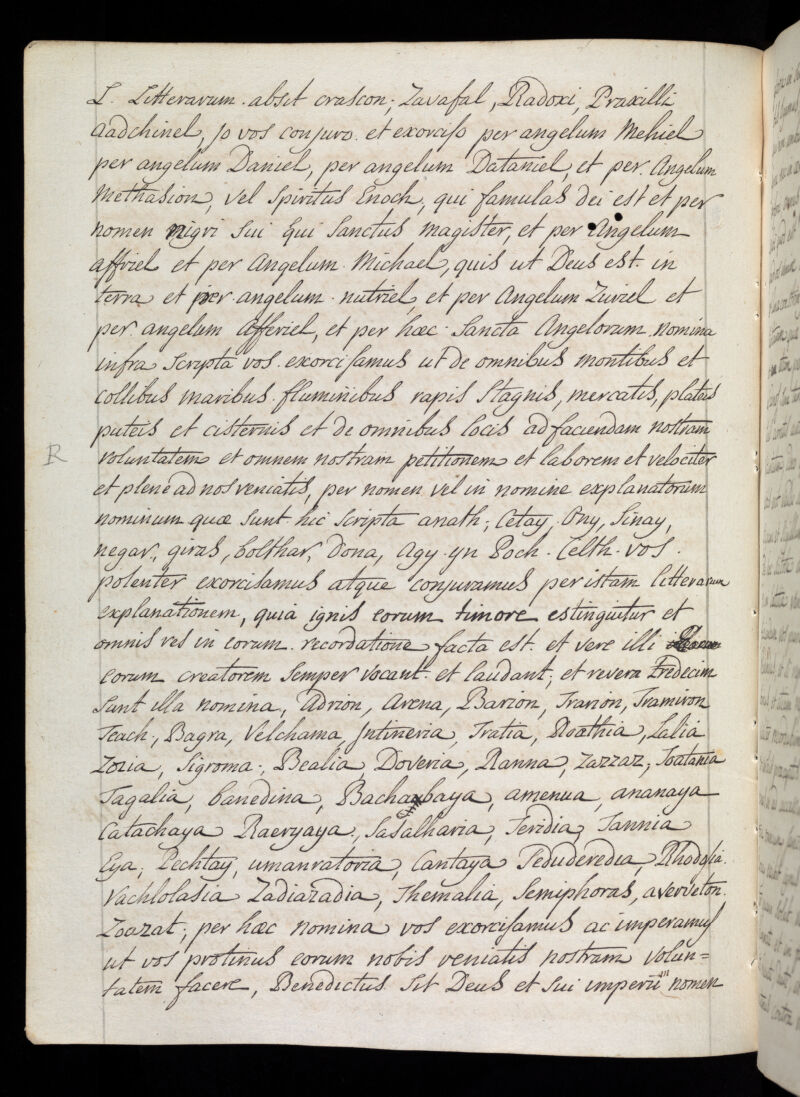 L. Litterarum absit crascon; Zavafal, Radoxi, Praxilli
aadchinel, Jo vos conjuro et exorciso per angelum Mehiel
per angelum Daniel, per angelum Dataniel, et per Angelum
Methasion, vel Spiritus Enoch, qui famulas dei est et per
nomen nigri sui qui Sanctus magister, et per Angelum
affriel et per Angelum Michael, quis ut Deus est in
terra et per angelum nutriel, et per Angelum Zuriel et
per angelum Offeriel, et per hæc Sancta Angelorum nomina
infra Scripta vos exorcisamus ut de omnibus montibus et
collibus maribus fluminibus rapis Stagnis, mercatis, plateis
puteis et cisternis et de omnibus locis ad faciendam nostram
R voluntatem et omnem nostram petitionem et laborem et velociter
et plene ad nos veniatis, per nomen vel in nomine explanatorum
nominum quæ sunt hic Scripta anath; Cetay, Ony, Sinay,
negar, giras, bolthar, Dona, Agy yn Poch. Celth. vos
potenter exorcisamus atque conjuramus per istam litterarum
explanationem, quia ignis eorum timore estinguitur et
omnis res in eorum recordatione facta est et vere illi
eorum creatorem Semper vocant et laudant; et revera Tredecim
Sunt illa nomina, Adrion, Arena, Barion, Irarion, Iramiron
Teach, Bagra, Velchama, Intineria, Tratia, Noathia, Lalia
Zozia, Sigroma, Bealia Doveria, Ranna, Zazzaz, Toatania
Tagalia, Canedina, Bachaxbaya, amenua, ananaya
Catachaya Raevyaya, Sasalhavia, Feridia, Tannia
Eya, Pechtay, umanratoria, Cantaya Teduderedia, Rhodolia
Vachlolasia Zadiazadia, Themalia, Semiphoras, averveton
Zoazat; per hæc nomina vos exorcisamus ac imperamus
ut vos protinus eorum nobis veniatis nostram volun=
tatem facere, Benedictus Sit Deus et sui imperii nomen